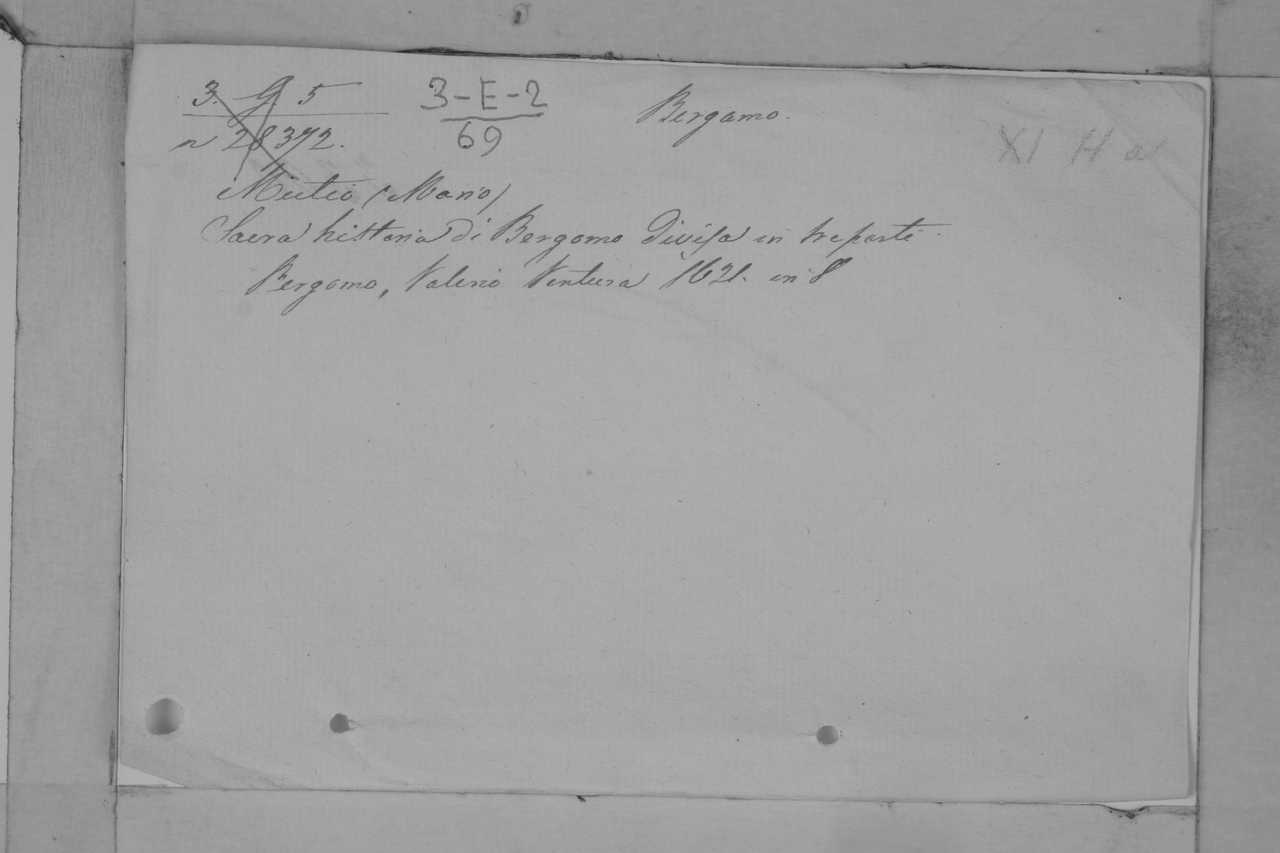 3. G 5
n 28372.
3-E-2
69
Bergamo.
XI H a
Mutio (Mario)
Sacra historia di Bergamo divisa in tre parti.
Bergamo, Valerio Ventura 1621. in 8